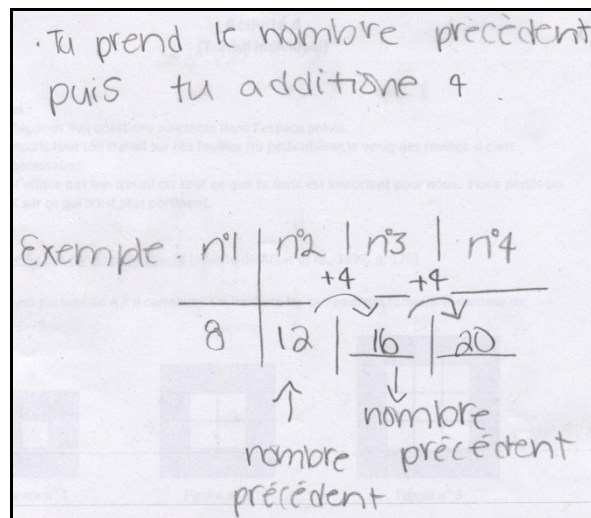 · Tu prend le nombre précédent
puis tu additione 4
Exemple n°1 | n°2 | n°3 | n°4
+4 +4
8 | 12 | 16 | 20
nombre précédent
nombre précédent